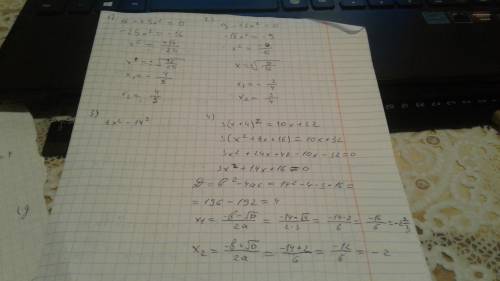 1) 16 - 25x² = 0
-25x² = -16
x² = -16/-25
x₁ = -4/5
x₂ = 4/5
2) 9 - 16x² = 0
-16x² = -9
x₁ = -3/4
x₂ = 3/4
3)
4)
3(x+4)² = 10x+32
3(x²+8x+16) = 10x+32
3x²+24x+48-10x-32=0
3x²+14x+16=0
D = b²-4ac = 14²-4·3·16=
= 196-192 = 4
x₁ = -b-√D/2a = -14-√4/2·3 = -14-2/6 = -16/6 = -2 2/3
x₂ = -b+√D/2a = -14+2/6 = -12/6 = -2